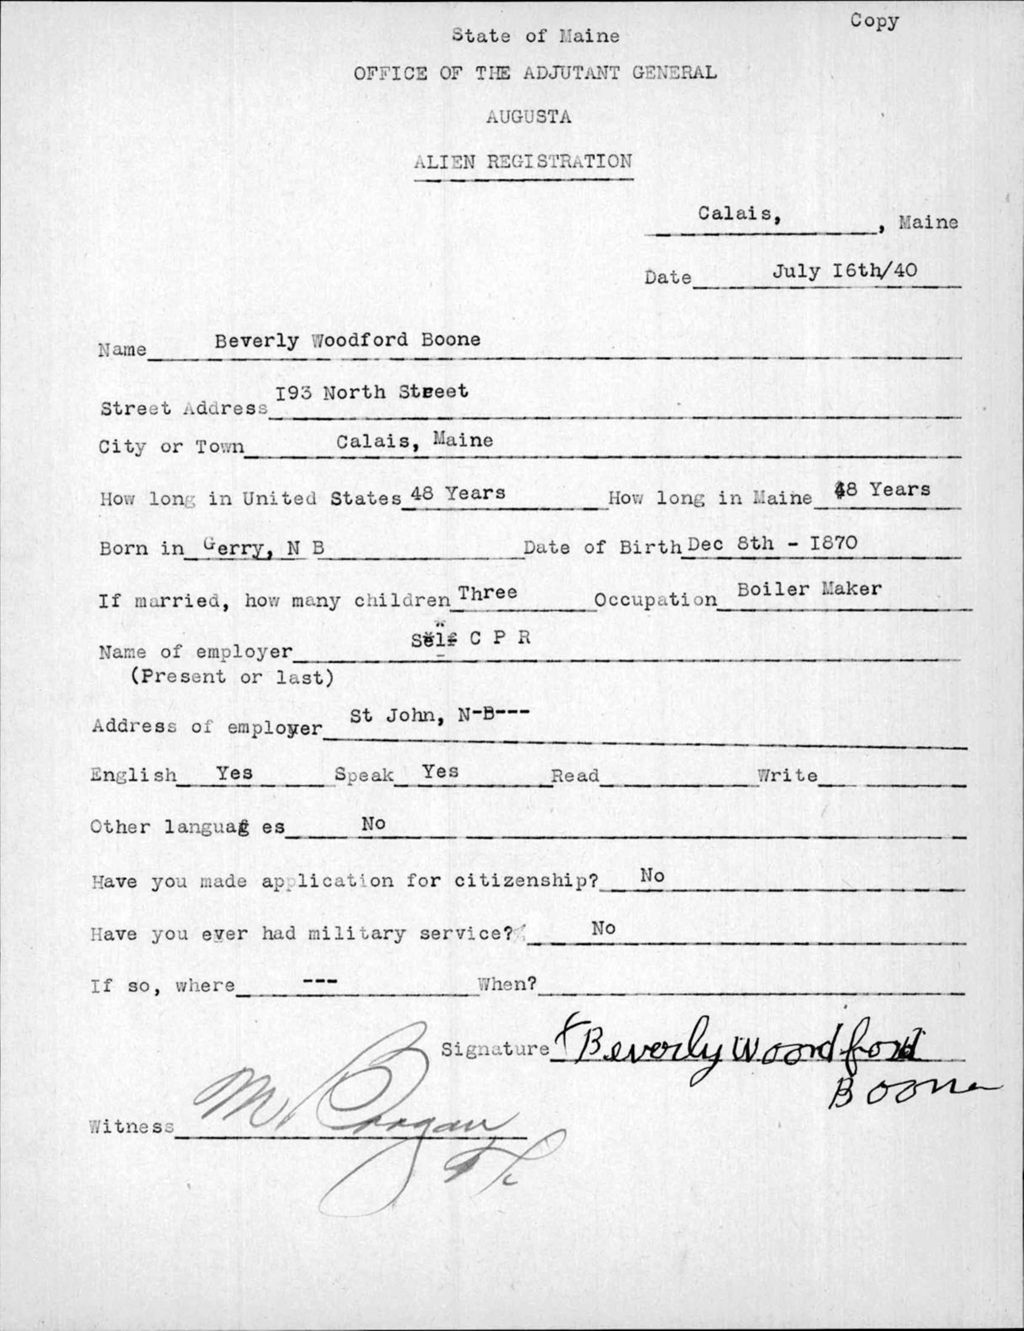 Copy
State of Maine
OFFICE OF THE ADJUTANT GENERAL
AUGUSTA
ALIEN REGISTRATION
Calais, , Maine
Date July I6th/40
Name Beverly Woodford Boone
Street Address I93 North Street
City or Town Calais, Maine
How long in United States 48 Years How long in Maine 48 Years
Born in Gerry, N B Date of Birth Dec 8th - I870
If married, how many children Three Occupation Boiler Maker
Name of employer Self C P R
(Present or last)
Address of employer St John, N-B---
English Yes Speak Yes Read Write
Other languages No
Have you made application for citizenship? No
Have you ever had military service? No
If so, where --- When?
Signature Beverly Woodford
Boone
Witness M